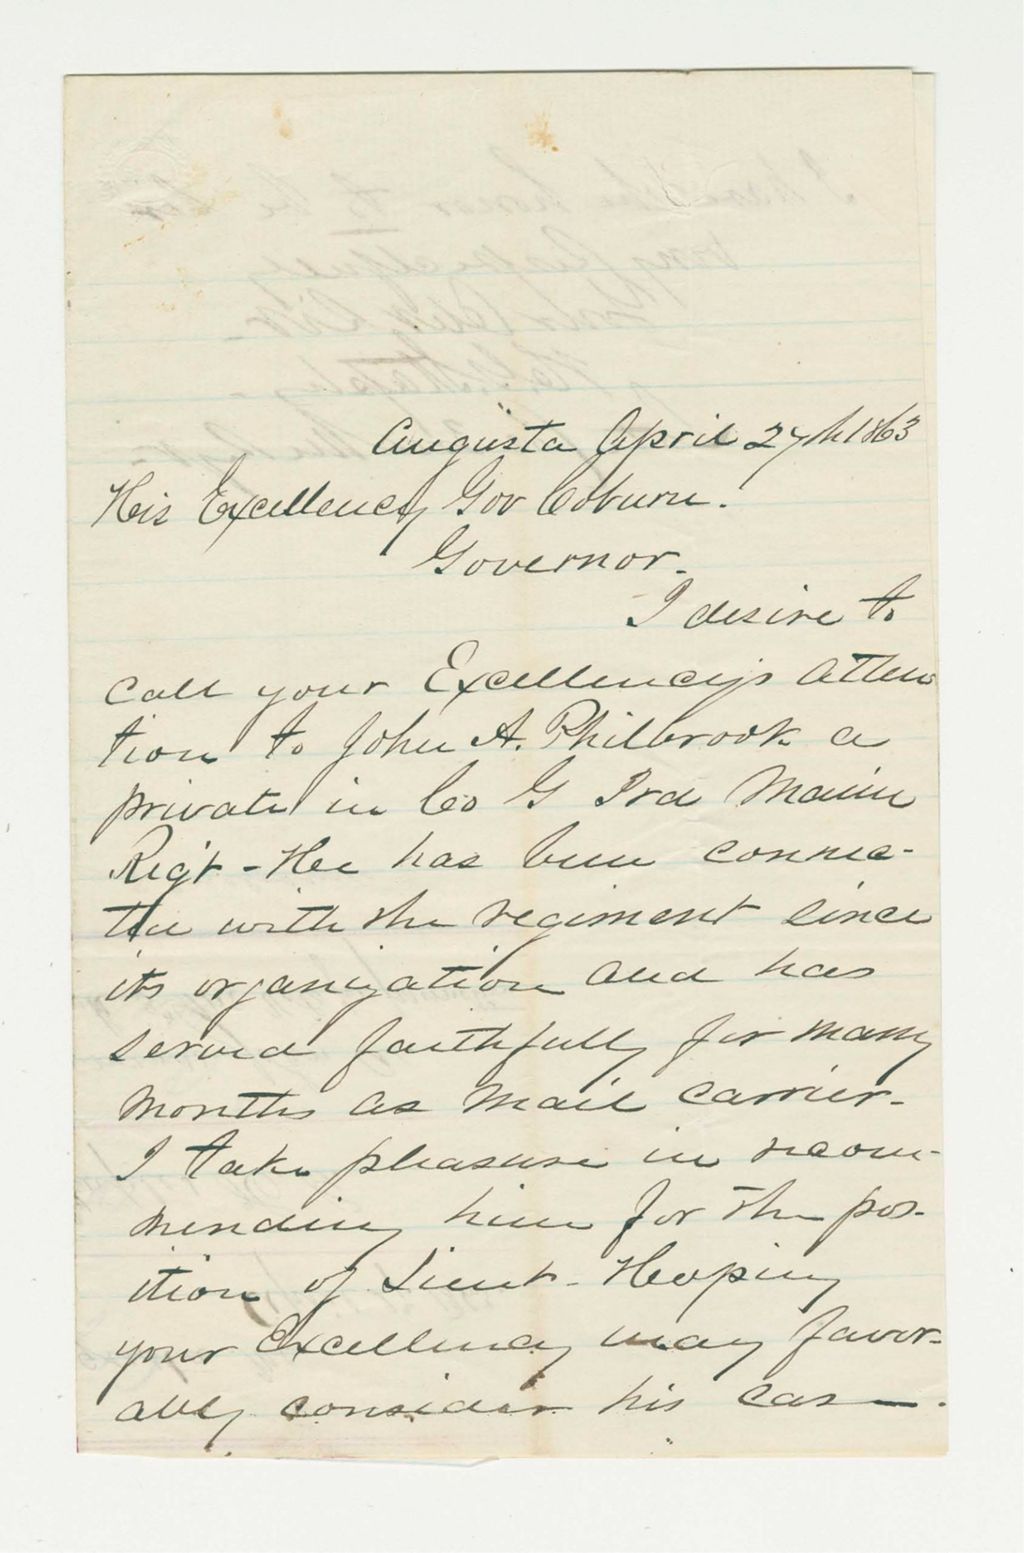 Augusta April 27th 1863
His Excellency Gov Coburn.
Governor.
I desire to
call your Excellency's atten
tion to John A. Philbrook a
private in Co G 3rd Maine
Reg't - He has been connec-
ted with the regiment since
its organization and has
served faithfully for many
months as mail carrier.
I take pleasure in recom-
mending him for the pos-
ition of Lieut - Hoping
your Excellency may favor-
ably consider his case.